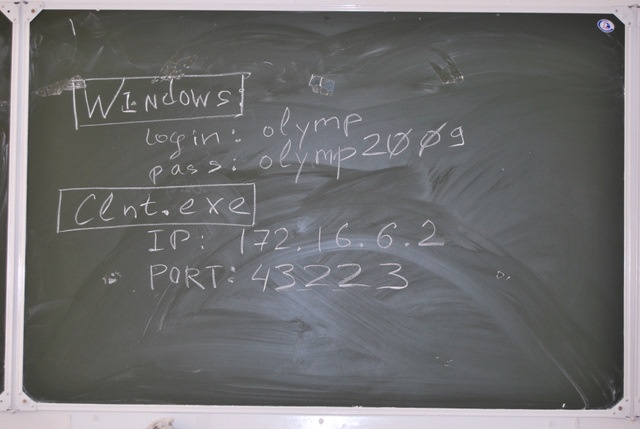 WINdows:
login: olymp
pass: olymp2009
Clnt.exe
IP: 172.16.6.2
PORT: 43223